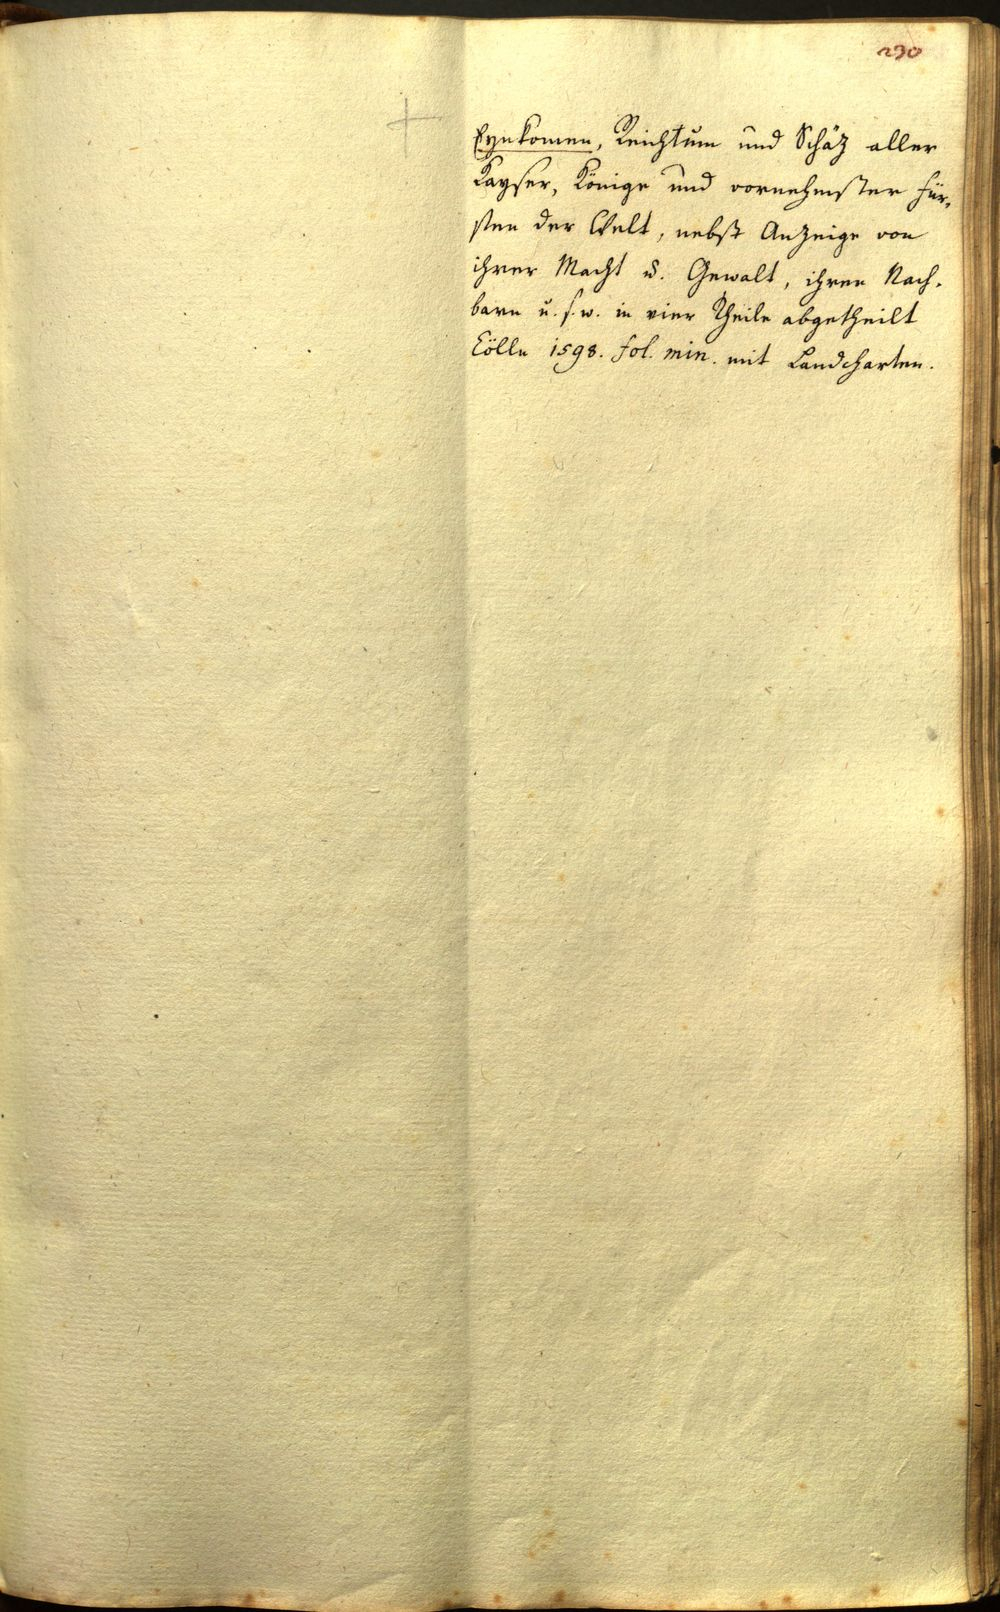 230
Eynkomen, Reichtum und Schäz aller
Kayser, Könige und vornehmster Für-
sten der Welt, nebst Anzeige von
ihrer Macht u. Gewalt, ihren Nach-
barn u. s. w. in vier Theile abgetheilt
Cölln 1598. fol. min. mit Landcharten.